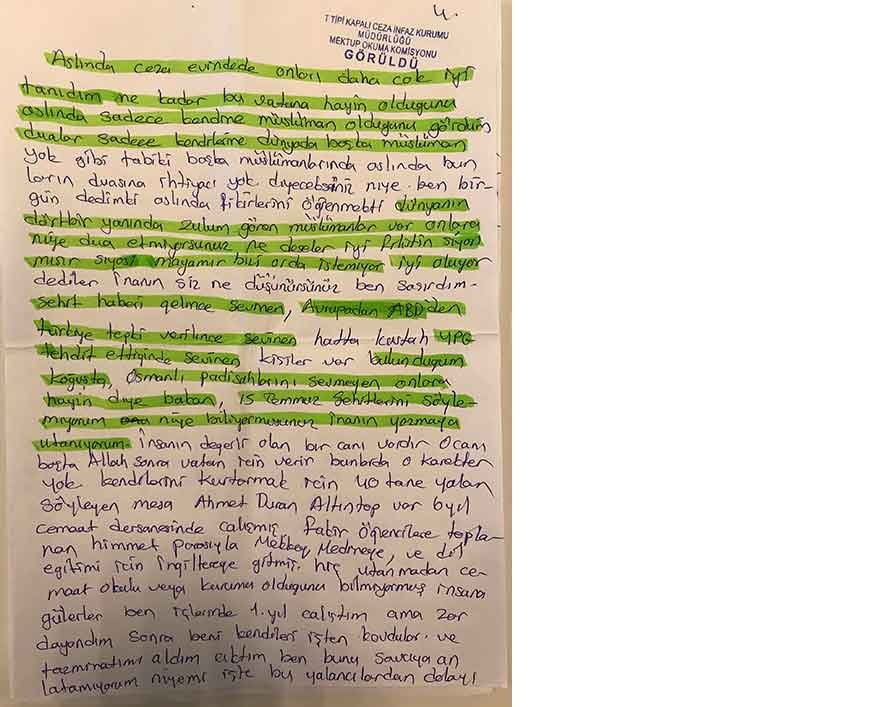 4.
T TİPİ KAPALI CEZA İNFAZ KURUMU
MÜDÜRLÜĞÜ
MEKTUP OKUMA KOMİSYONU
GÖRÜLDÜ
Aslında ceza evindede onları daha çok iyi
tanıdım ne kadar bu vatana hayin olduğunu
aslında sadece kendine müslüman olduğunu gördüm
dualar sadece kendilerine dünyada başka müslüman
yok gibi tabiki başka müslümanlarında aslında bun
ların duasına ihtiyacı yok diyeceksiniz niye. ben bir-
gün dedimki aslında fikirlerini öğrenmekti dünyanın
dörtbir yanında zulum gören müslümanlar var onlara
niye dua etmiyorsunuz ne deseler iyi siyasi
mısır siyasi bizi orda istemiyor iyi oluyor
dediler inanın siz ne düşünürsünüz ben şaşırdım-
şehit haberi gelince sevinen, Avrupadan ABD'den
türkiye tepki verilince sevinen hatta küstah YPG
tehdit ettiğinde sevinen kişiler var bulunduğum
koğuşta, Osmanlı padişahlarını sevmeyen onlara
hayin diye bakan, 15 Temmuz şehitlerini söyle-
miyorum niye biliyormusunuz inanın yazmaya
utanıyorum. İnsanın değerli olan bir canı vardır O canı
başta Allah sonra vatan için verir bunlarda o karakter
yok kendilerini kurtarmak için 40 tane yalan
söyleyen mesa Ahmet Duran Altıntop var 6 yıl
cemaat dersanesinde çalışmış fakir öğrencilere topla-
nan himmet parasıyla Mekkey Medineye, ve dil
egitimi için İngiltereye gitmiş. hiç utanmadan ce-
maat okulu veya kurumu olduğunu bilmiyormuş insana
gülerler ben içlerinde 1. yıl çalıştım ama zor
dayandım sonra beni kendileri işten kovdular. ve
tazminatımı aldım çıktım ben bunu savcıya an
latamıyorum niyemi işte bu yalancılardan dolayı